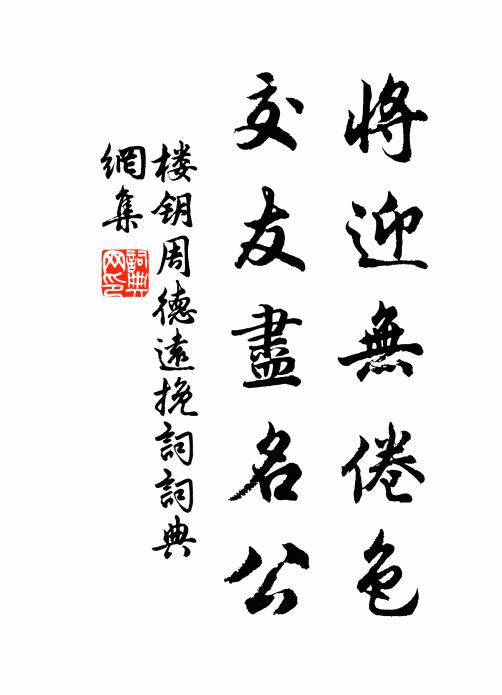 將迎無倦色
交友盡名公
楼钥周德遠挽詞詞典
網集
詞典
网印